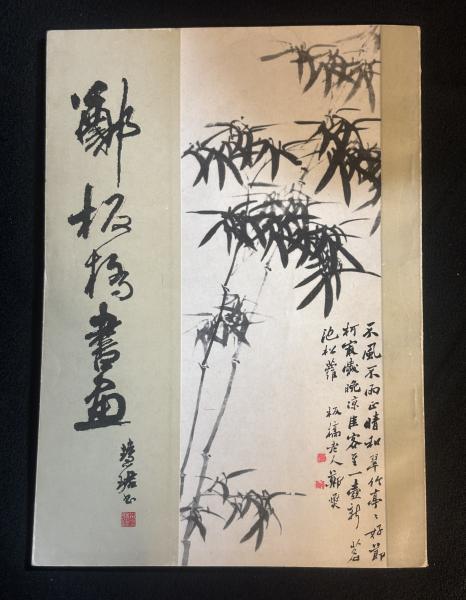 鄭板橋書画
不風不雨正晴和翠竹亭〻好節
柯㝡愛晚凉佳客至一壺新茗
泡松蘿 板橋老人鄭燮